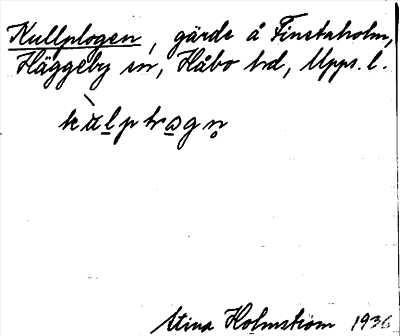 Kullplogen, gärde å Finstaholm,
Häggeby sn, Håbo hd, Upps. l.
Stina Holmström 1936